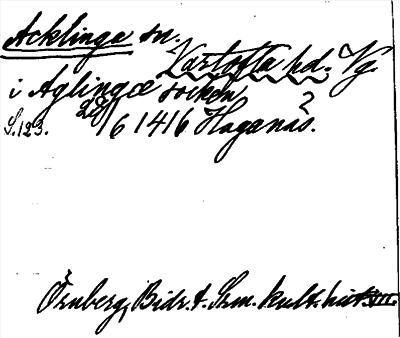 Acklinga sn.
Vartofta hd. Vg.
i Aglinge socken
S. 123. 28/6 1416 Haganäs. ?
Örnberg, Bidr. t. Srm. kult. hist. VII.